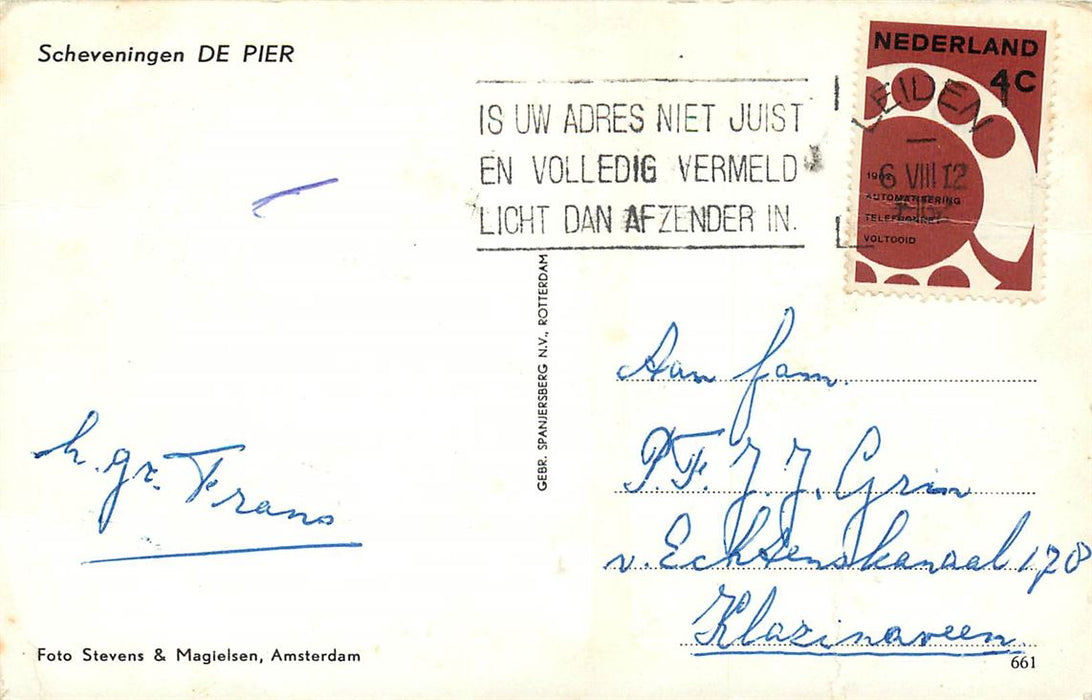 Scheveningen DE PIER
IS UW ADRES NIET JUIST
EN VOLLEDIG VERMELD
LICHT DAN AFZENDER IN.
NEDERLAND
4C
LEIDEN
6 VIII 12
AUTOMATISERING
TELEFOONNET
VOLTOOID
GEBR. SPANJERSBERG N.V., ROTTERDAM
h. gr. Frans
Aan fam.
P.F. J. J. Grin
v. Echtenskanaal 178
Klazinaveen
Foto Stevens & Magielsen, Amsterdam
661